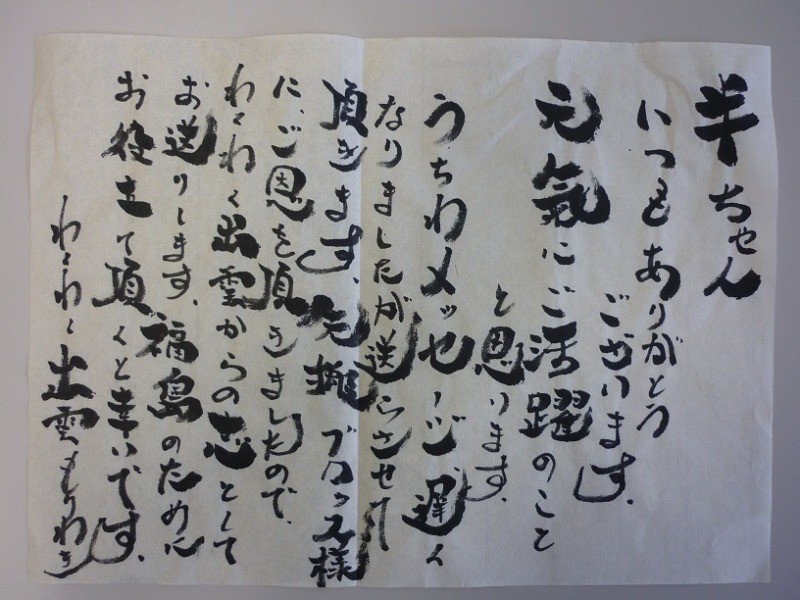 ちゃん
いつもありがとう
ございます。
元氣にご活躍のこと
と思います。
うちわメッセージ、遅く
なりましたが送らさせて
頂きます。先攤ブロス様
に、ご恩を頂きましたので、
わくわく出雲からの志として
お送りします。福島のために
お役立て頂くと幸いです。
わくわく出雲もりわき